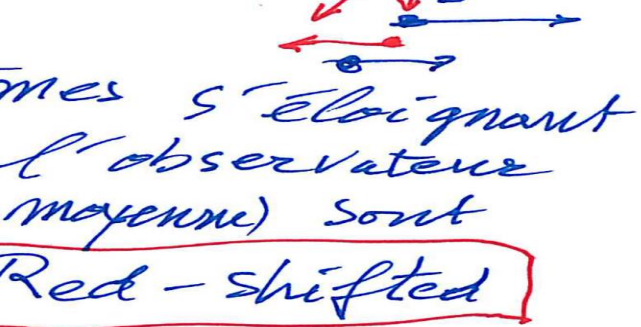 mes s'éloignant
l'observateur
moyenne) sont
Red-shifted